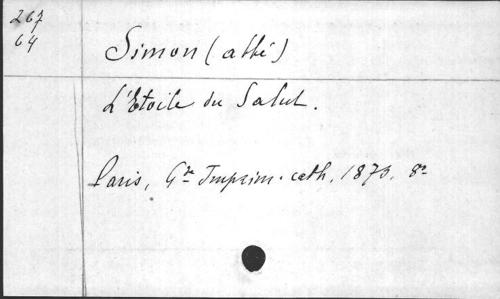 267
64
Simon (abbé)
L'Etoile du Salut.
Paris, Gde Imprim. cath. 1873. 8º